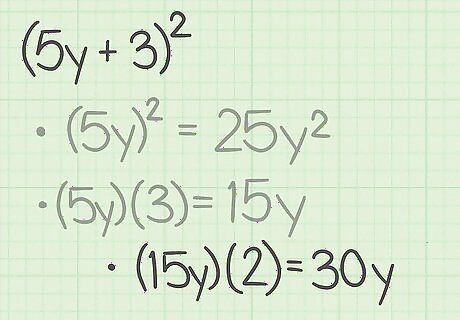 (5y + 3)²
• (5y)² = 25y²
• (5y)(3) = 15y
• (15y)(2) = 30y